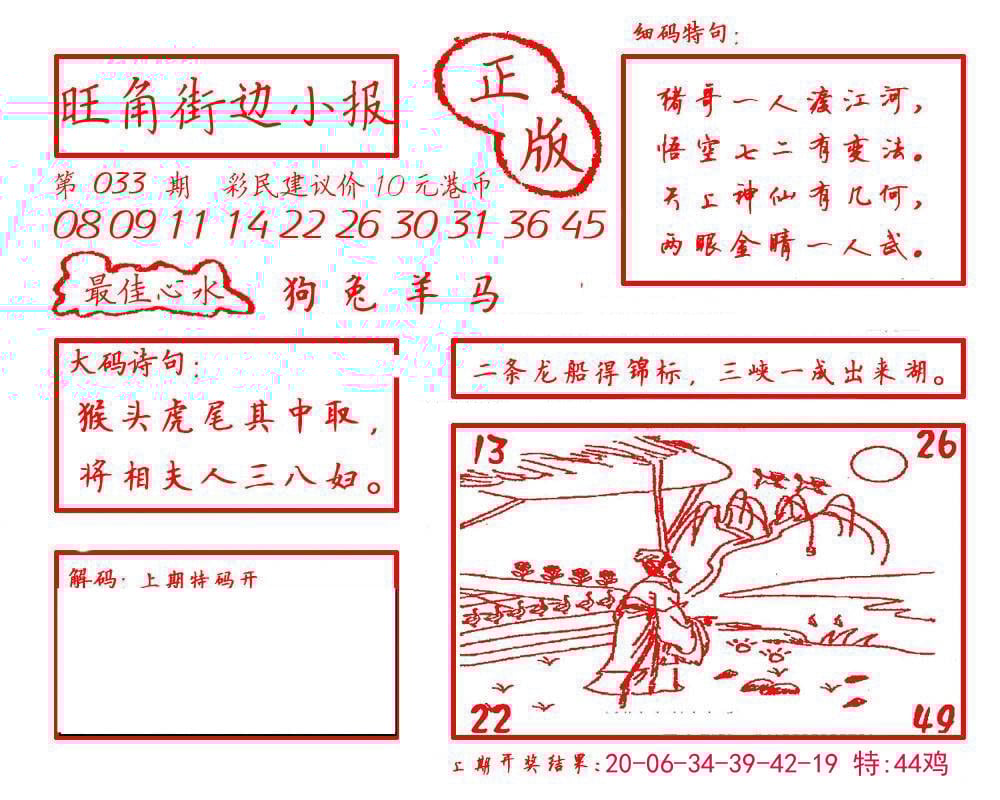 旺角街边小报
正版
第 033 期 彩民建议价 10 元港币
08 09 11 14 22 26 30 31 36 45
最佳心水 狗 兔 羊 马
细码特句：
猪哥一人渡江河，
悟空七二有变法。
天上神仙有几何，
两眼金睛一人武。
大码诗句：
猴头虎尾其中取，
将相夫人三八妇。
二条龙船得锦标，三峡一成出来湖。
解码·上期特码开
13
26
22
49
上期开奖结果：20-06-34-39-42-19 特：44鸡